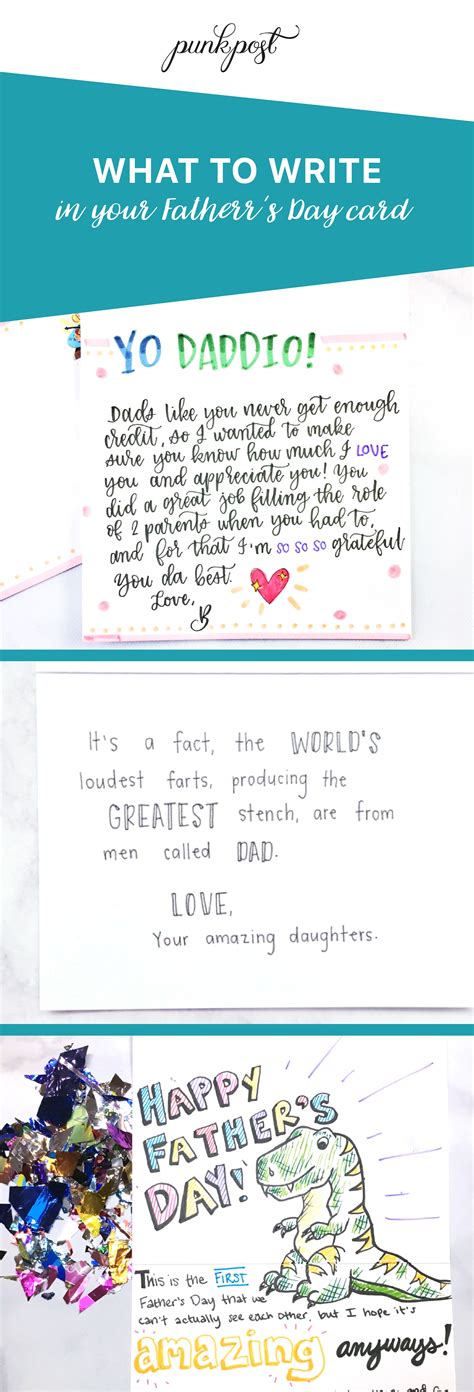 punkpost
WHAT TO WRITE
in your Fatherr's Day card
YO DADDIO!
Dads like you never get enough
credit, so I wanted to make
sure you know how much I LOVE
you and appreciate you! You
did a great job filling the role
of 2 parents when you had to,
and for that I'm so so so grateful
You da best.
Love,
B
It's a fact, the WORLD'S
loudest farts, producing the
GREATEST stench, are from
men called DAD.
LOVE,
Your amazing daughters.
HAPPY
FATHER'S
DAY!
This is the FIRST
Father's Day that we
can't actually see each other, but I hope it's
amazing anyways!